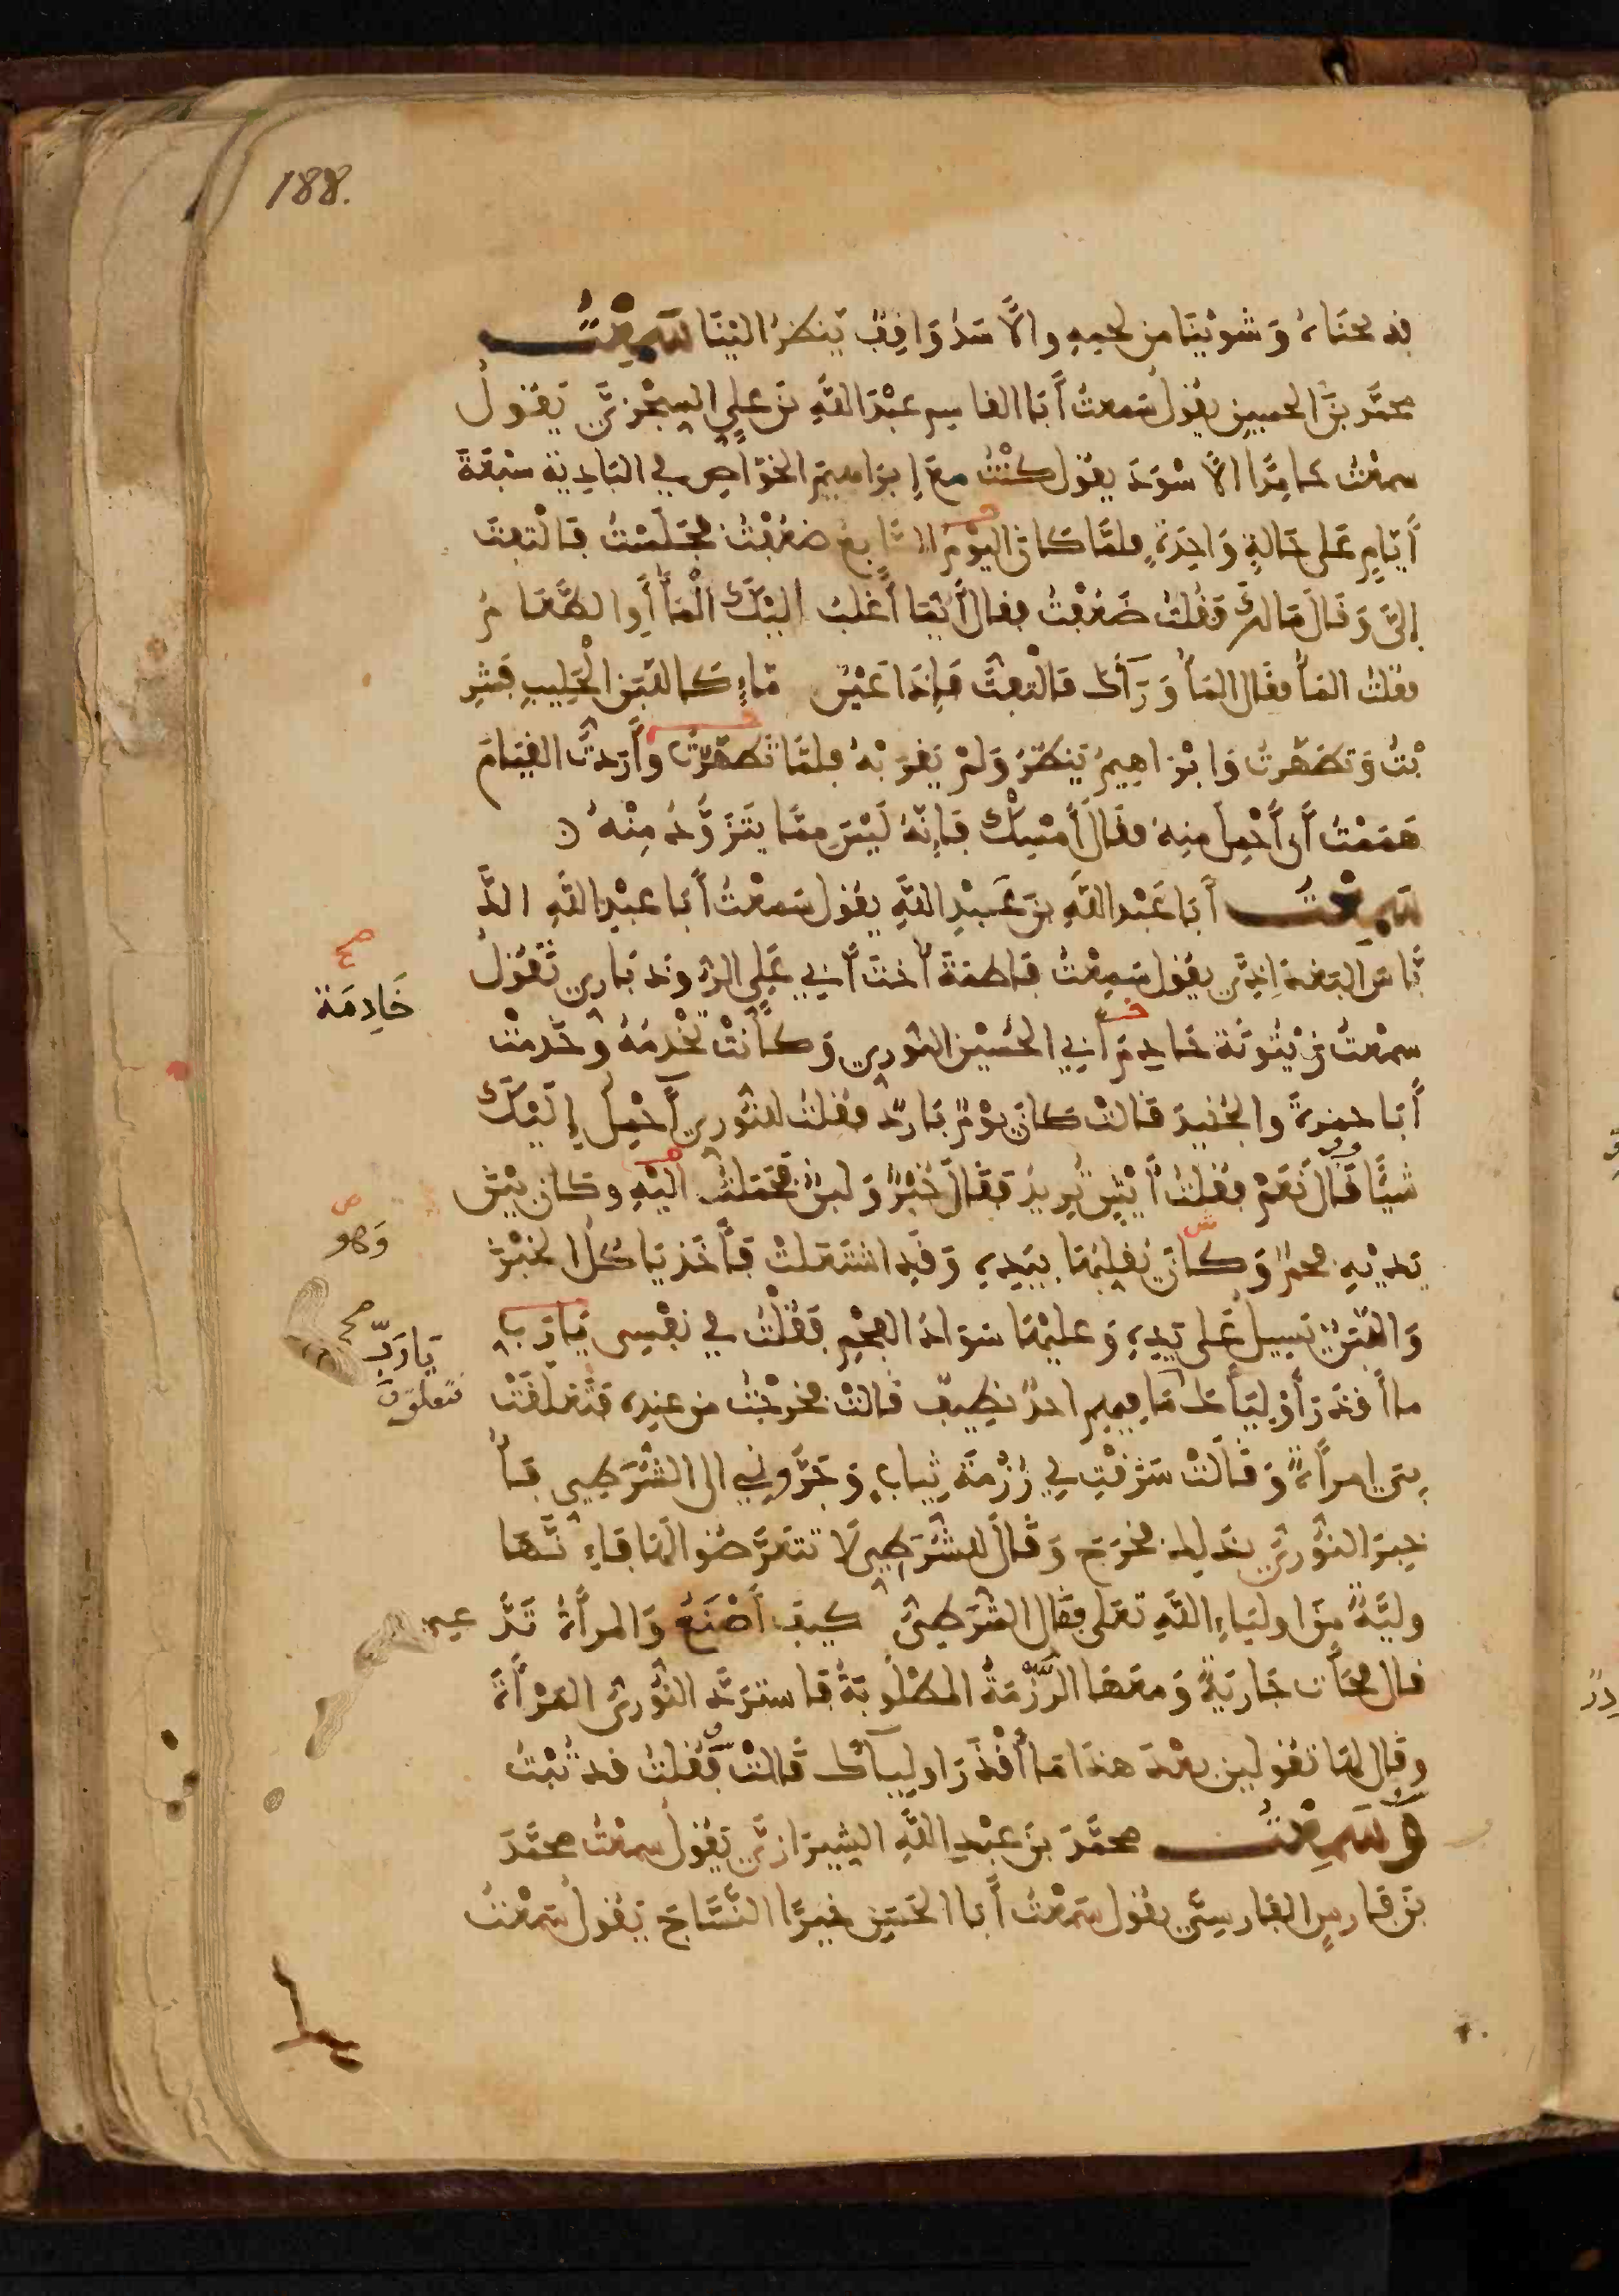 188.
قد ذبحناه وَشوَيْنَا من لحمِهِ والأَسَدُ وَاقِفٌ يَنظرُ اليْنَا سَمِعْتُ
محمَّد بنَ الحسينِ يقولُ سَمعتُ أَبَا القاسِم عبْدَ اللَّهِ بنَ علِيٍّ السِّجْزِيَّ يَقولُ
سمعْتُ حَامِدًا الأَسْوَدَ يقولُ كنْتُ معَ إِبرَاهيمَ الخَوّاصِ في البَادِيَة سَبْعَةَ
أَيَّامٍ عَلى حَالَةٍ وَاحِدَةٍ فلمَّا كَانَ اليَوْمُ السَّابِعُ ضعُفْتُ فجَلَسْتُ فَالْتَفَتَ
إِلَيَّ وَقَالَ مَالكَ فَقُلتُ ضَعُفْتُ فقالَ أَيُّمَا أَغْلَبُ اليْكَ الْمَآءُ أَوِ الطَّعَامُ
فقلتُ المَآءُ فقَالَ المَآءُ وَرَآءَكَ فَالْتفتُّ فَإِذَا عَيْنُ مَاءٍ كَاللَّبَنِ الْحَلِيبِ فَشرِ
بْتُ وَتَطَهَّرتُ وَابْرَاهِيمُ يَنظُرُ وَلَمْ يَقرَبْهُ فلمَّا تَطَهَّرْتُ وأَرَدتُّ القِيَامَ
هَمَمْتُ أَن أَحْمِلَ منهُ فقَالَ أَمْسِكْ فَإِنَّهُ لَيْسَ مِمَّا يتَزَوَّدُ مِنْهُ
سَمِعْتُ أَبَا عَبْدِ اللَّهِ بنَ عَبْدِ اللَّهِ يقول سَمعْتُ أَبَا عبْدِ اللَّهِ الدَّ
بَّاسَ البَغدَاذِيَّ يقول سَمِعْتُ فَاطمَةَ أُختَ أَبي عَلِيٍّ الرُّوذبَاري تَقُولُ
سمعْتُ زيْتُونَةَ خَادِمَ أَبي الحُسَيْنِ النُّوري وَكَانَتْ تَخْدمُهُ وخَدَمتْ
خَادِمَة
أَبَا حمزةَ والجُنَيدَ قَالتْ كَانَ يَوْمٌ بَارِدٌ فقلتُ للنُّوري أَحْمِلُ إِلَيْكَ
شيئًا قَالَ نَعَمْ فقُلتُ أَيْشٍ تُرِيدُ فقَالَ خُبْزٌ وَلبنٌ فحَمَلتُ الَيْهِ وكَانَ بَيْنَ
يَديْهِ فحمٌ وَكَانَ يُقلِبُهَا بيَدِهِ وَقَدِ اشتَعَلتْ فَأَخَذ يَاكُلُ الخبْزَ
وَهو
وَاللبَنُ يَسِيلُ عَلى يَدِهِ وَعليْهَا سَوَادُ الفَحْمِ فَقُلْتُ في نَفْسِي يَارَبِّ
يَارَبّ
ما أَقذَرَ أَوْلِيَآءَكَ مَا فيهِم احدٌ نظِيفٌ قَالَتْ فخرَجْتُ من عندِه فَتَعَلَّقَتْ
فتعلق
بي امرأَةٌ وَقَالَتْ سَرَقْتِ لِي رُزْمَةَ ثِيابٍ وَجَرُّونِي الى الشُّرَطِي فَأُ
خبِرَ النُّورِيُّ بذلِك فخَرَجَ وَقَالَ للشُّرَطِي لَا تتَعَرَّضُوا لَهَا فَإِنَّهَا
وليَّةٌ منَ اوليَاءِ اللَّهِ تعَلى فقَالَ الشُّرَطِيُّ كيفَ أَصْنَعُ وَالمرأَةُ تَدَّعِي
قال فجَآءَت جَارِيَةٌ وَمَعَهَا الرُّزْمَةُ المَطْلُوبَةُ فَاستَرَدَّ النُّورِيُّ المَرْأَةَ
وقَال لهَا تقولين بعْدَ هذَا مَا أَقْذَرَ اوليآءَكَ قَالتْ فقُلتُ قد تُبْتُ
وَسَمِعْتُ محمَّدَ بنَ عبْدِ اللَّهِ الشِّيرَازيَّ يَقُولُ سمعْتُ محمَّدَ
بنَ فَارسٍ الفَارِسيَّ يقولُ سَمعْتُ أَبَا الحَسَنِ خيرًا النَّسَّاجَ يَقُولُ سَمعْتُ